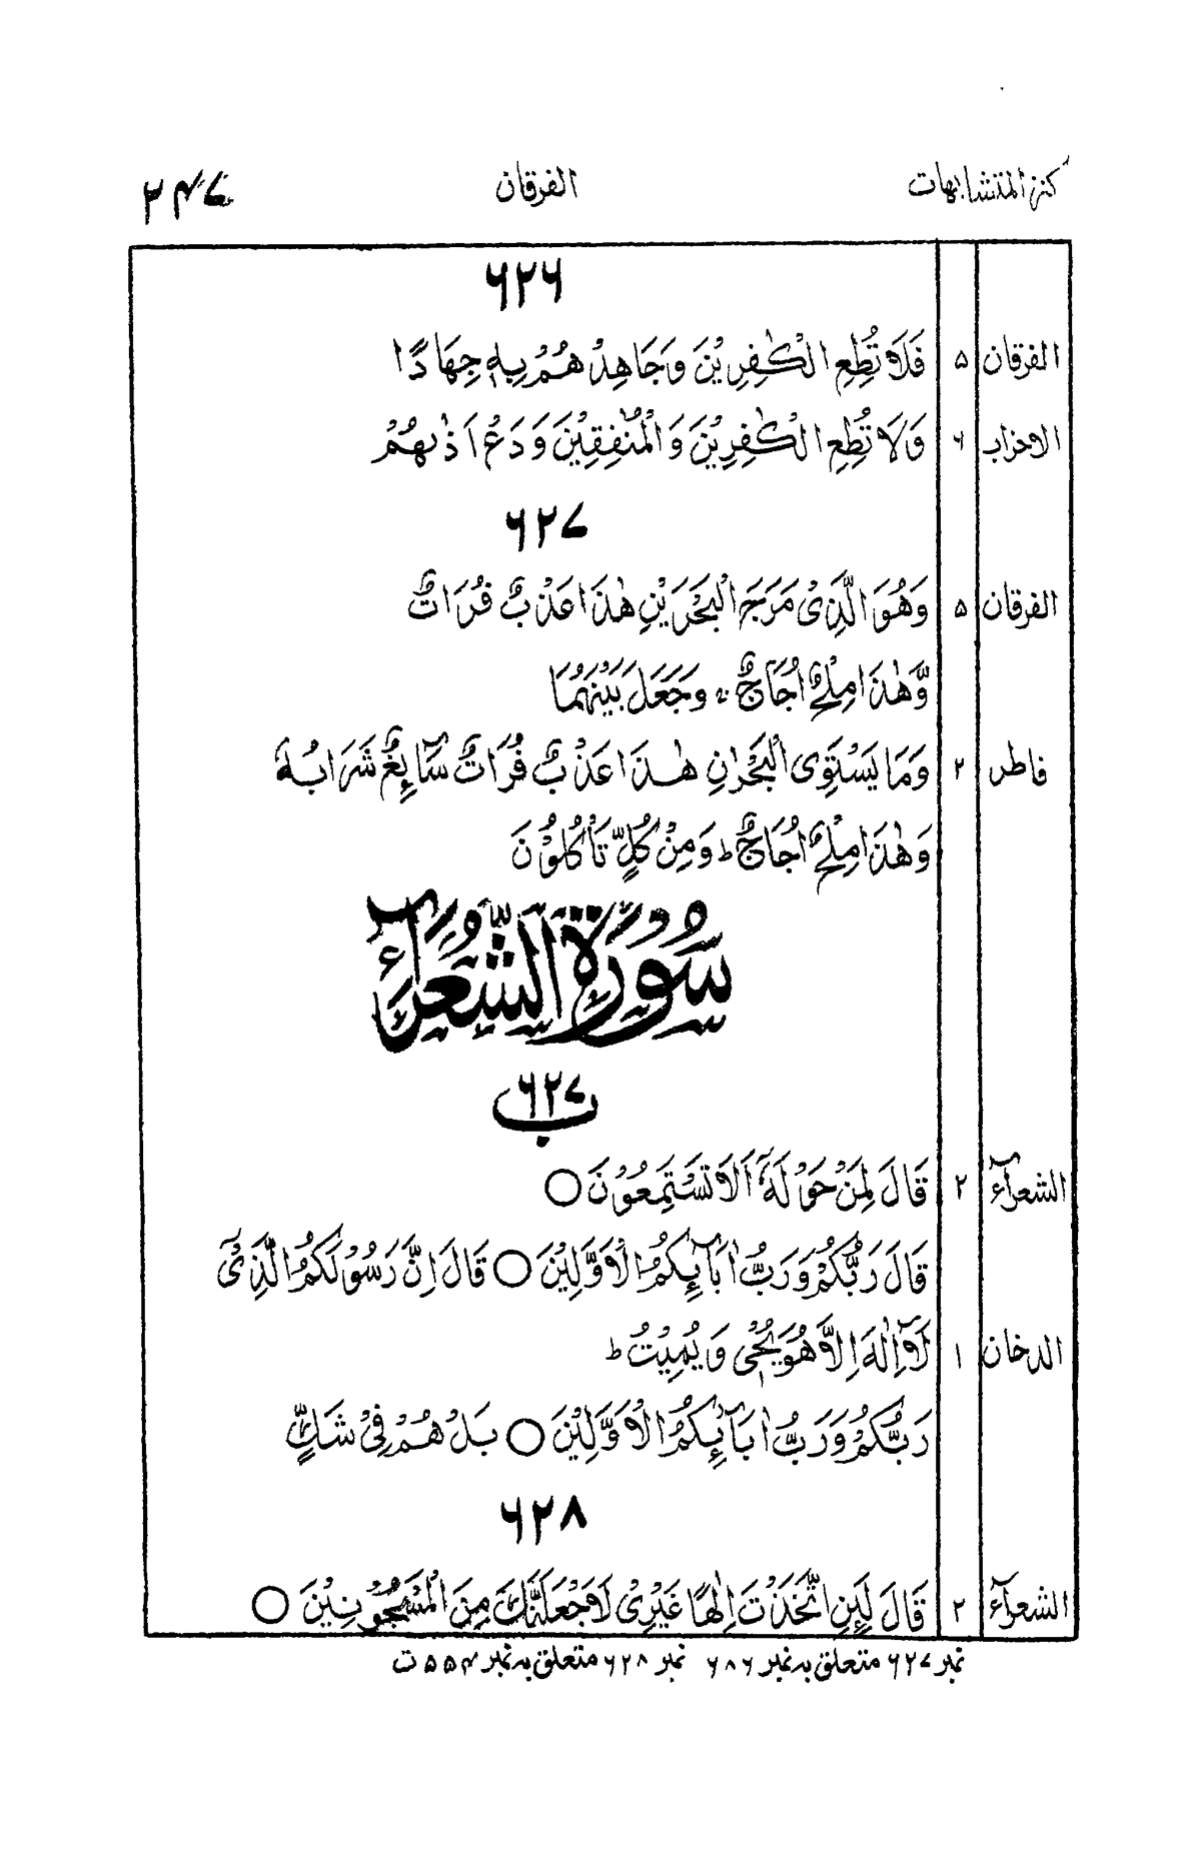 کنز المتشابہات الفرقان ۲۴۷
۶۲۶
الفرقان ۵ فَلَا تُطِعِ الْكٰفِرِيْنَ وَجَاهِدْهُمْ بِهٖ جِهَادًا
الاحزاب ۶ وَلَا تُطِعِ الْكٰفِرِيْنَ وَالْمُنٰفِقِيْنَ وَدَعْ اَذٰىهُمْ
۶۲۷
الفرقان ۵ وَهُوَ الَّذِىْ مَرَجَ الْبَحْرَيْنِ هٰذَا عَذْبٌ فُرَاتٌ
وَّهٰذَا مِلْحٌ اُجَاجٌ ۚ وَجَعَلَ بَيْنَهُمَا
فاطر ۲ وَمَا يَسْتَوِى الْبَحْرٰنِ هٰذَا عَذْبٌ فُرَاتٌ سَآئِغٌ شَرَابُهٗ
وَهٰذَا مِلْحٌ اُجَاجٌ ط وَمِنْ كُلٍّ تَاْكُلُوْنَ
سُوْرَةُ الشُّعَرَآءِ
۶۲۷ ب
الشعرآء ۲ قَالَ لِمَنْ حَوْلَهٗٓ اَلَا تَسْتَمِعُوْنَ ○
قَالَ رَبُّكُمْ وَرَبُّ اٰبَآئِكُمُ الْاَوَّلِيْنَ ○ قَالَ اِنَّ رَسُوْلَكُمُ الَّذِىْٓ
الدخان ۱ لَآ اِلٰهَ اِلَّا هُوَ يُحْىٖ وَيُمِيْتُ ط
رَبُّكُمْ وَرَبُّ اٰبَآئِكُمُ الْاَوَّلِيْنَ ○ بَلْ هُمْ فِىْ شَكٍّ
۶۲۸
الشعرآء ۲ قَالَ لَئِنِ اتَّخَذْتَ اِلٰهًا غَيْرِىْ لَاَجْعَلَنَّكَ مِنَ الْمَسْجُوْنِيْنَ ○
نمبر ۶۲۷ متعلق بہ نمبر ۶۸۶ نمبر ۶۲۸ متعلق بہ نمبر ۵۵۴ ت